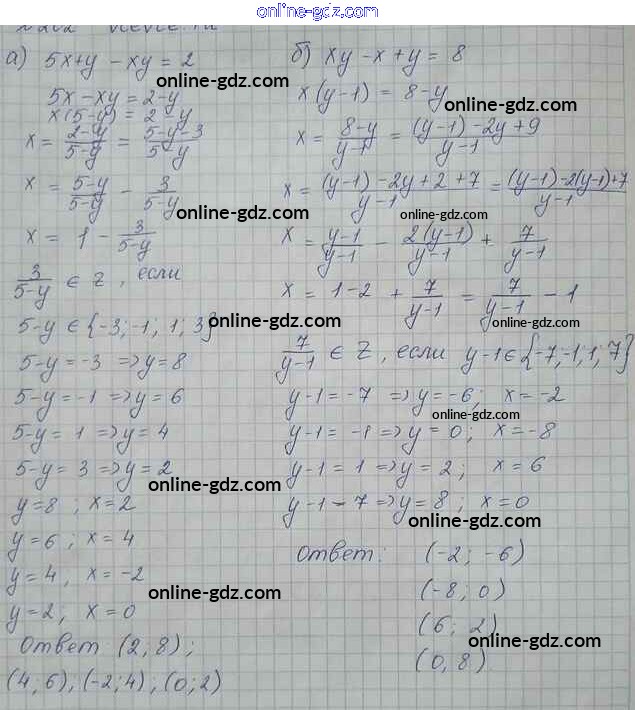 online-gdz.com
а) 5x+y-xy=2
5x-xy=2-y
x(5-y)=2-y
x = \frac{2-y}{5-y} = \frac{5-y-3}{5-y}
x = \frac{5-y}{5-y} - \frac{3}{5-y}
x = 1 - \frac{3}{5-y}
\frac{3}{5-y} ∈ Z, если
5-y ∈ {-3; -1; 1; 3}
5-y=-3 => y=8
5-y=-1 => y=6
5-y=1 => y=4
5-y=3 => y=2
y=8; x=2
y=6; x=4
y=4, x=-2
y=2; x=0
Ответ (2; 8);
(4; 6); (-2; 4); (0; 2)
б) xy-x+y=8
x(y-1)=8-y
x = \frac{8-y}{y-1} = \frac{(y-1)-2y+9}{y-1}
x = \frac{(y-1)-2y+2+7}{y-1} = \frac{(y-1)-2(y-1)+7}{y-1}
x = \frac{y-1}{y-1} - \frac{2(y-1)}{y-1} + \frac{7}{y-1}
x = 1-2 + \frac{7}{y-1} = \frac{7}{y-1} - 1
\frac{7}{y-1} ∈ Z, если y-1∈{-7;-1;1;7}
y-1=-7 => y=-6; x=-2
y-1=-1 => y=0; x=-8
y-1=1 => y=2; x=6
y-1-7 => y=8; x=0
Ответ: (-2; -6)
(-8; 0)
(6; 2)
(0, 8)
online-gdz.com
online-gdz.com
online-gdz.com
online-gdz.com
online-gdz.com
online-gdz.com
online-gdz.com
online-gdz.com
online-gdz.com
online-gdz.com
online-gdz.com
online-gdz.com
online-gdz.com
online-gdz.com